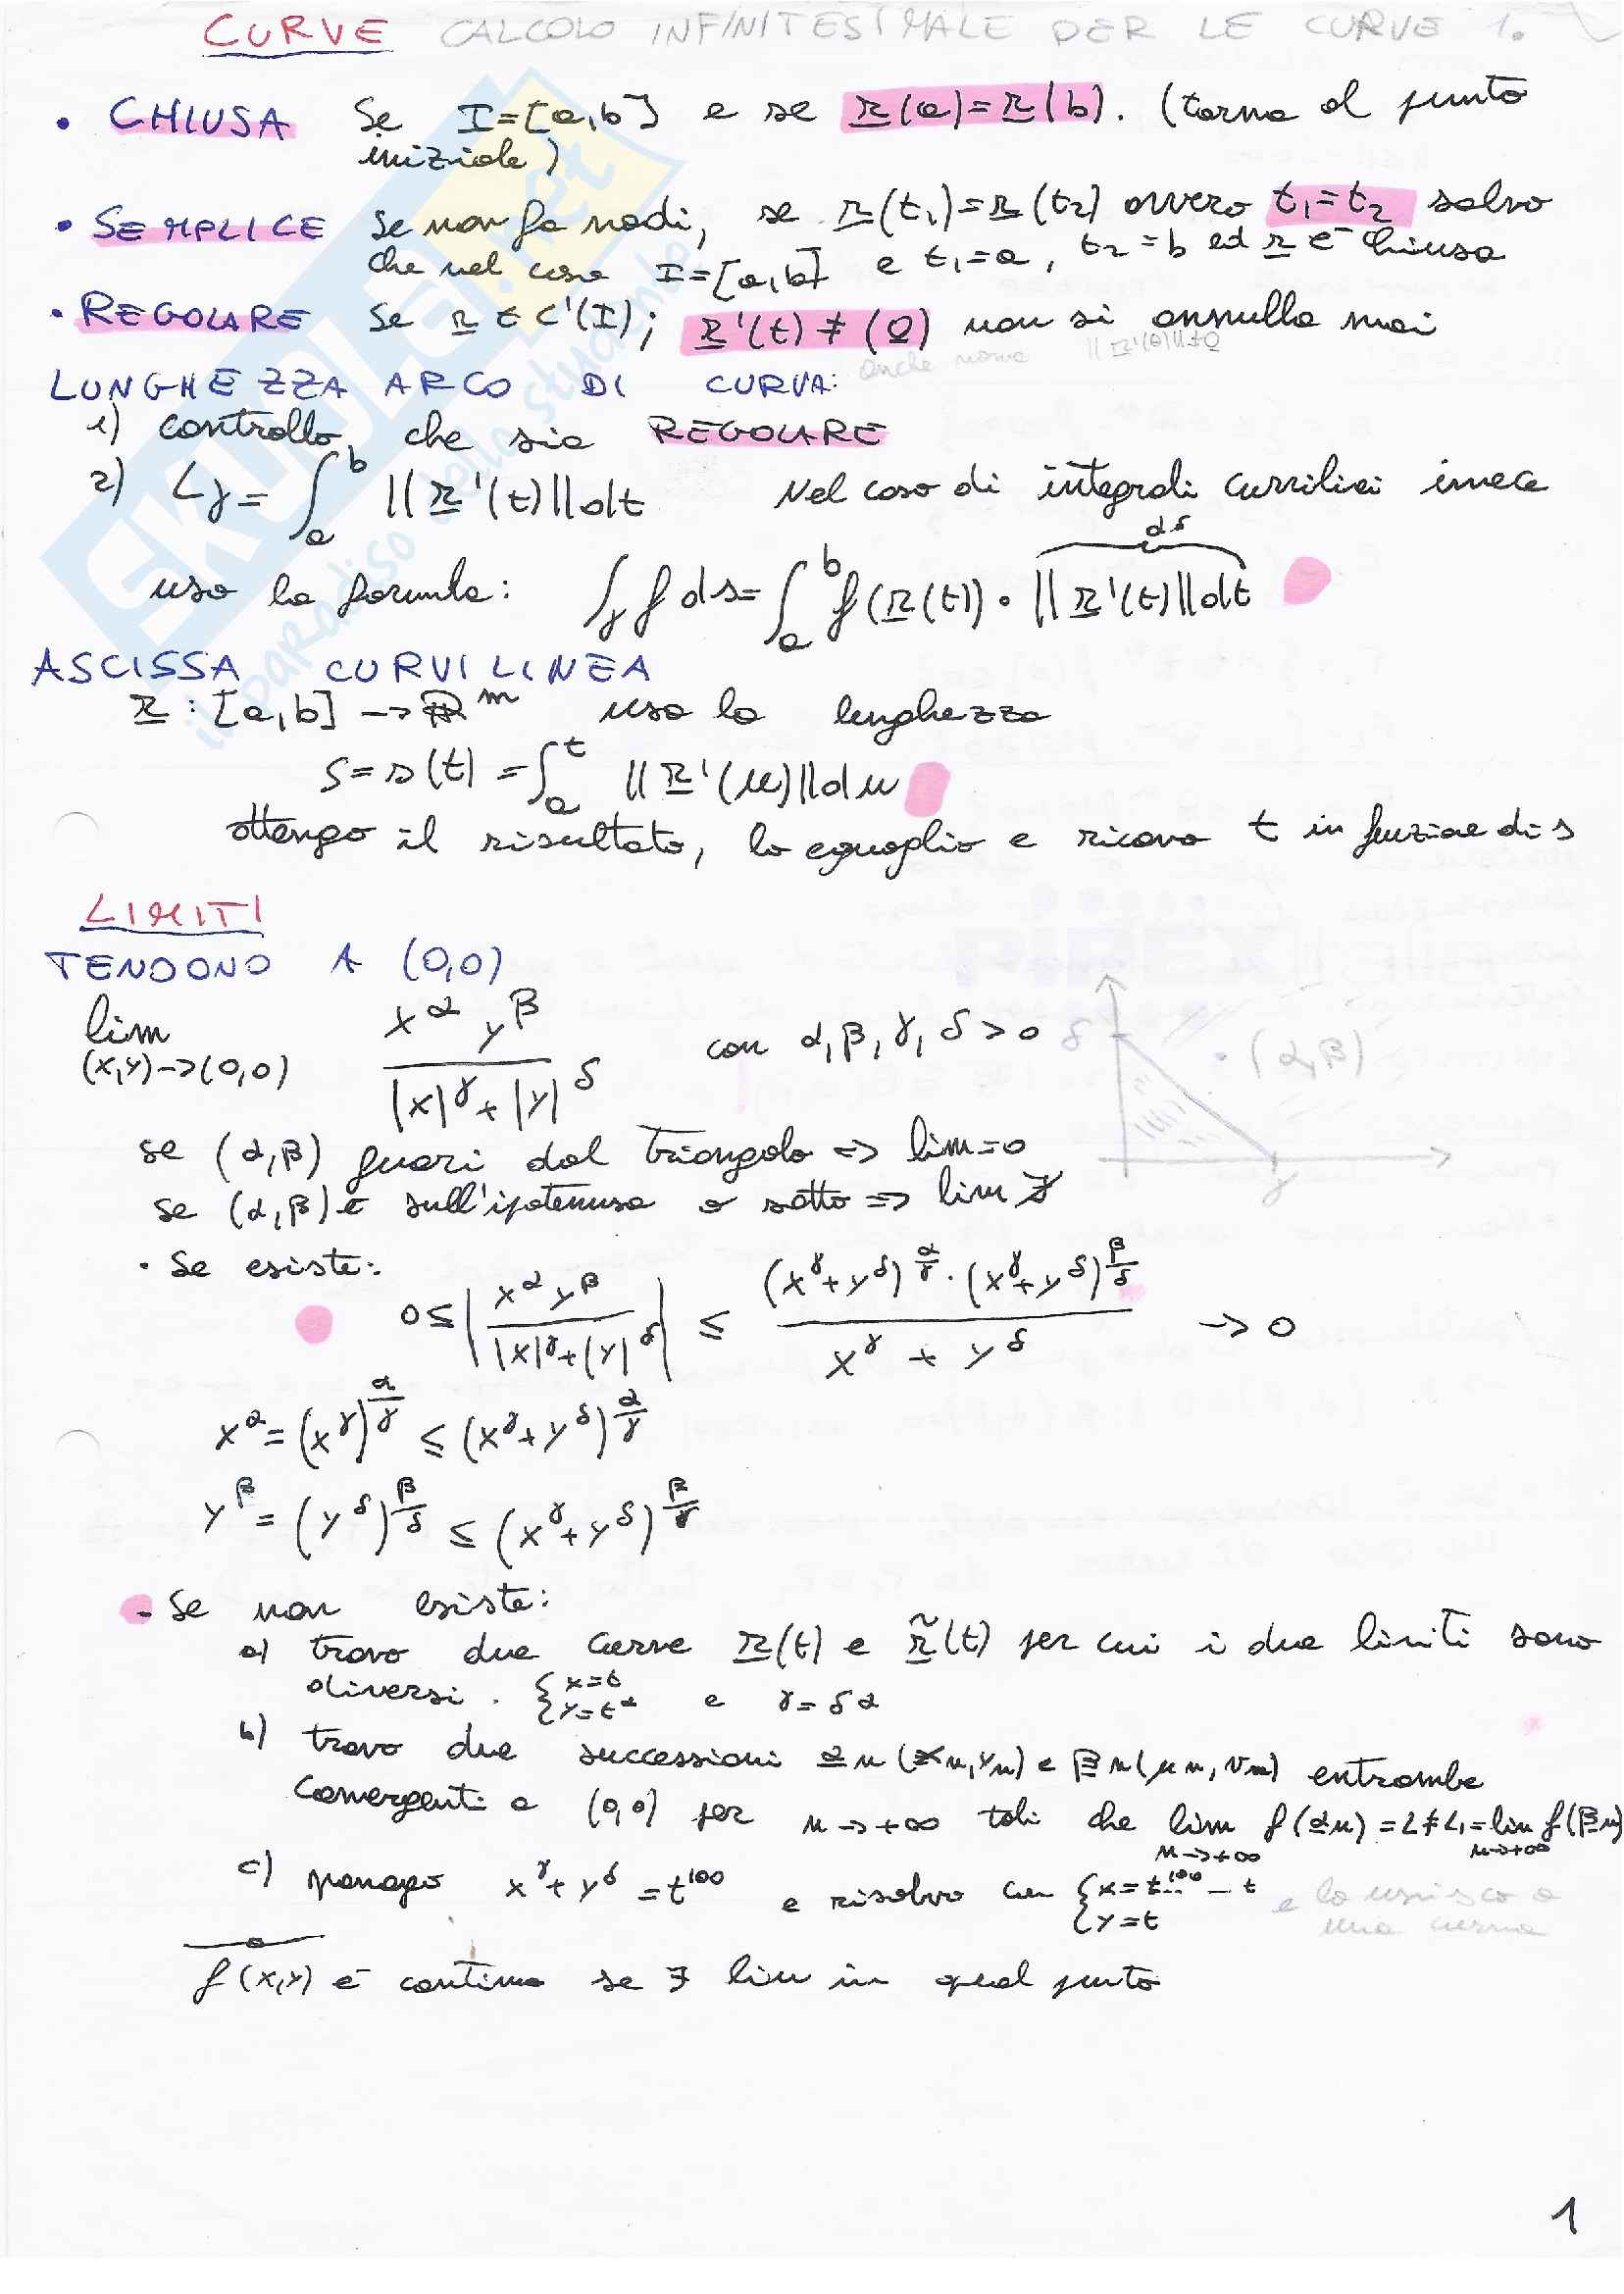 CURVE CALCOLO INFINITESIMALE PER LE CURVE 1.
• CHIUSA Se I=[a,b] e se r(a)=r(b). (torna al punto
iniziale)
• SEMPLICE se non fa nodi, se r(t₁)=r(t₂) ovvero t₁=t₂ salvo
che nel caso I=[a,b] e t₁=a, t₂=b ed r è chiusa
• REGOLARE Se r ∈ C'(I); r'(t) ≠ (0) non si annulla mai
anche norma ||r'(t)||≠0
LUNGHEZZA ARCO DI CURVA:
1) controllo che sia REGOLARE
2) Lγ = ∫ₐᵇ ||r'(t)||dt Nel caso di integrali curvilinei invece
ds
uso la formula: ∫γ f ds = ∫ₐᵇ f(r(t)) • ||r'(t)||dt
ASCISSA CURVILINEA
r : [a,b] -> ℝᵐ uso la lunghezza
s = s(t) = ∫ₐᵗ ||r'(u)||du
ottengo il risultato, lo eguaglio e ricavo t in funzione di s
LIMITI
TENDONO A (0,0)
lim (x,y)->(0,0) x^α y^β / |x|^γ + |y|^δ con α, β, γ, δ > 0
δ • (α,β)
γ
se (α,β) fuori dal triangolo => lim=0
se (α,β) è sull'ipotenusa o sotto => lim ∄
• Se esiste:
0 ≤ | x^α y^β / |x|^γ + |y|^δ | ≤ (x^γ + y^δ)^(α/γ) · (x^γ + y^δ)^(β/δ) / x^γ + y^δ -> 0
x^α = (x^γ)^(α/γ) ≤ (x^γ + y^δ)^(α/γ)
y^β = (y^δ)^(β/δ) ≤ (x^γ + y^δ)^(β/γ)
- Se non esiste:
a) trovo due curve r(t) e r̃(t) per cui i due limiti sono
diversi. {x=t y=t^α e γ = δα
b) trovo due successioni αn (xn, yn) e βn (μn, νn) entrambe
convergenti a (0,0) per n -> +∞ tali che lim n->+∞ f(αn) = L ≠ L₁ = lim n->+∞ f(βn)
c) pongo x^γ + y^δ = t^100 e risolvo con {x = t^100... - t y = t e lo unisco a
una curva
f(x,y) è continua se ∃ lim in quel punto
1